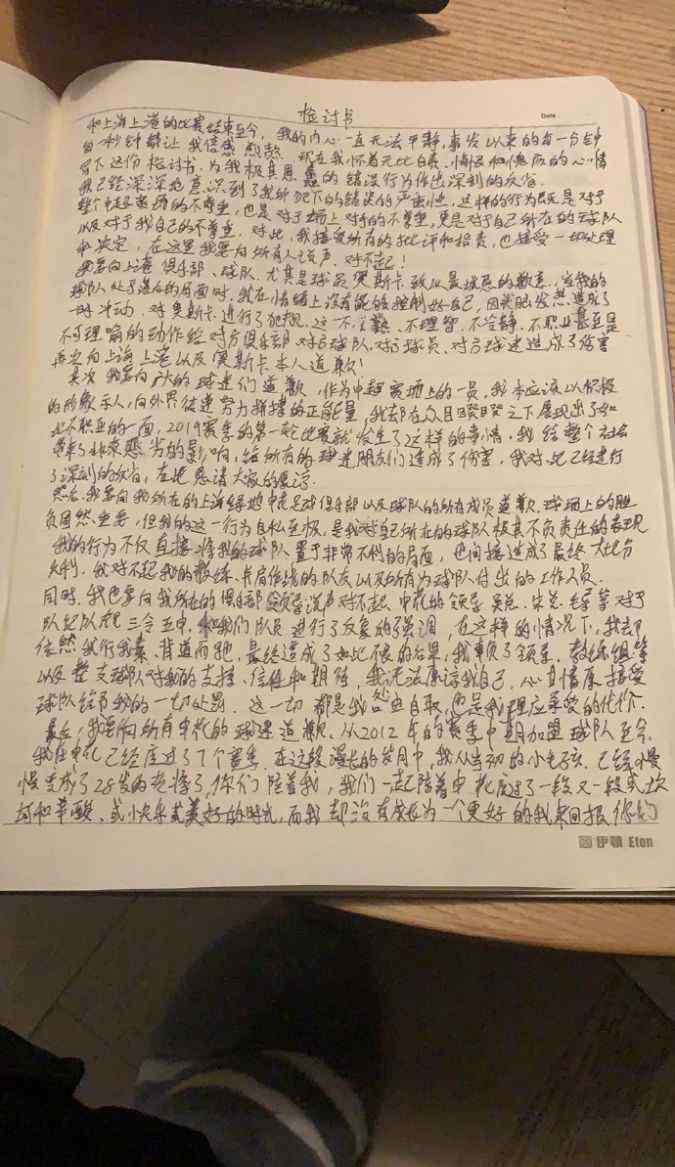 检讨书
Date
和上海上港的比赛结束至今，我的内心一直无法平静，事发以来的每一分钟
每一秒钟都让我倍感煎熬．现在我怀着无比自责、懊恼和懊悔的心情
写下这份检讨书．为我极其愚蠢的错误行为作出深刻的反省．
我已经深深地意识到了我所犯下的错误的严重性，这样的行为既是对于
整个中超联赛的不尊重，也是对于场上对手的不尊重，更是对于自己所在的球队
以及对于我自己的不尊重．对此，我接受所有的批评和指责，也接受一切处理
和决定，在这里我要向所有人说声，对不起！
我要向上港俱乐部、球队、尤其是球员奥斯卡致以最诚恳的歉意，在我的
球队处于落后的局面时，我在情绪上没有能够控制好自己，因我的
一时冲动，对奥斯卡进行了犯规．这一不 、不理智、不冷静、不职业甚至是
不可理喻的动作给对方俱乐部、对方球队、对方球员、对方球迷造成了伤害
再次向上海上港以及奥斯卡本人道歉！
其次，我要向广大的球迷们道歉，作为中超赛场上的一员，我本应该以积极
的形象示人，向外界传递努力拼搏的正能量，我却在众目睽睽之下展现出了如
此不职业的一面，2019赛季的第一轮比赛就发生了这样的事情，我给整个社会
带来了非常恶劣的影响，给所有的球迷朋友们造成了伤害，我对此已经进行
了深刻的反省，在此恳请大家的原谅．
然后，我要向我所在的上海绿地申花足球俱乐部以及球队的所有成员道歉．球场上的胜
负固然重要，但我的这一行为自私至极，是我对自己所在的球队极其不负责任的表现
我的行为不仅直接将我的球队置于非常不利的局面，也间接造成了最终大比分
失利．我对不起我的教练、并肩作战的队友以及所有为球队付出的工作人员．
同时，我也要向我所在的俱乐部领导说声对不起，申花的领导吴总、朱总、毛导等对于
队纪队规三令五申，和我们队员进行了反复的强调，在这样的情况下，我却
依然我行我素，背道而驰，最终造成了如此不良的后果，我辜负了领导、教练组等
以及整支球队对我的支持、信任和期望，我无法原谅我自己，心甘情愿接受
球队给予我的一切处罚．这一切都是我咎由自取，也是我理应承受的代价．
最后，我要向所有申花的球迷道歉．从2012年的赛季中期加盟球队至今，
我在申花已经度过了7个赛季．在这段漫长的岁月中，我从当初的小毛孩，已经慢
慢变成了28岁的老将了，你们陪着我，我们一起陪着申花度过了一段又一段或坎
坷和辛酸、或快乐或美好的时光，而我却没有成长为一个更好的我来回报你们
伊顿 Eton